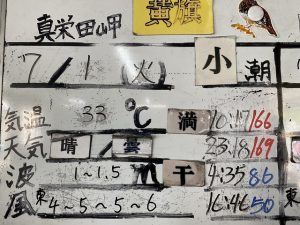 真栄田岬 黄旗
7/1 (火) 小潮
気温 33 ℃ 満 10:17 166
天気 晴/曇 23:18 169
波 1~1.5 m 干 4:35 86
風 東 4~5~5~6 東 16:46 50